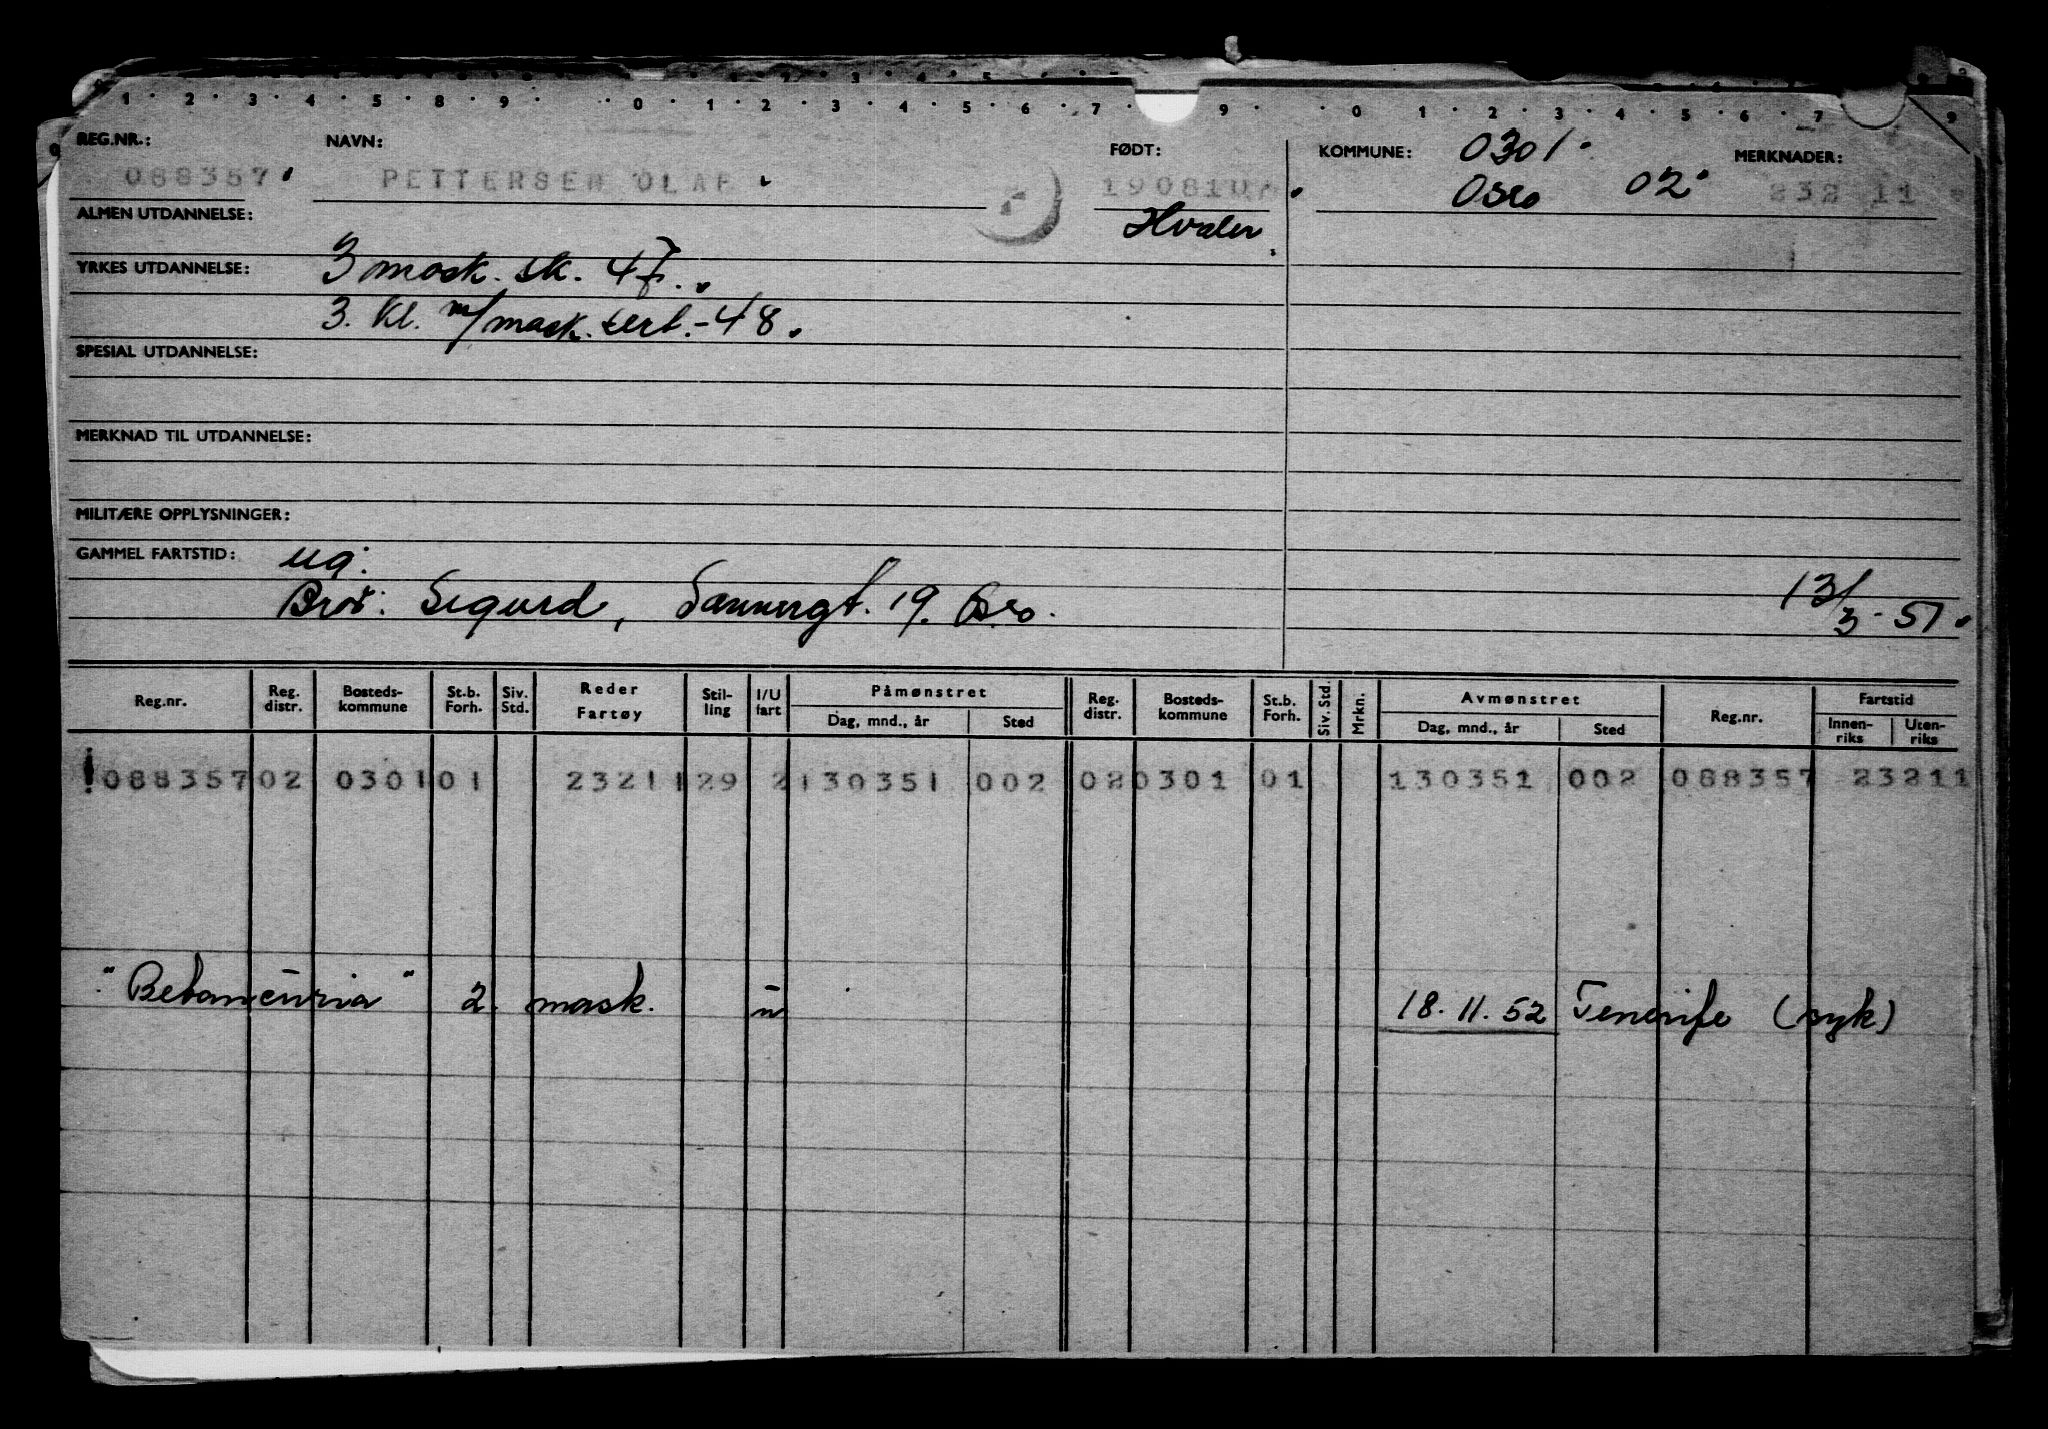 1 · 2 · 3 · 4 · 5 · 8 · 9 · 0 · 1 · 2 · 3 · 4 · 5 · 6 · 7 · 9 · 0 · 1 · 2 · 3 · 4 · 5 · 6 · 7 · 9
REG.NR.: NAVN: FØDT: KOMMUNE: 0301 MERKNADER:
088357 PETTERSEN OLAF 190810 Oslo 02 232 11
ALMEN UTDANNELSE: Hvaler
YRKES UTDANNELSE: 3 mask. sk. 47.
3. kl. m/mask. sert. -48.
SPESIAL UTDANNELSE:
MERKNAD TIL UTDANNELSE:
MILITÆRE OPPLYSNINGER:
GAMMEL FARTSTID: ug.
Bror: Sigurd, Sannergt. 19. Oslo. 13/3-51.
Reg.nr. Reg. distr. Bosteds-kommune St.b. Forh. Siv. Std. Reder Fartøy Stil-ling I/U fart Påmønstret Dag, mnd., år Sted Reg. distr. Bosteds-kommune St.b. Forh. Siv. Std. Mrkn. Avmønstret Dag, mnd., år Sted Reg.nr. Fartstid Innen-riks Uten-riks
088357 02 0301 01 23211 29 2 130351 002 02 0301 01 130351 002 088357 23211
"Betancuria" 2. mask. u 18.11.52 Tenerife (syk)